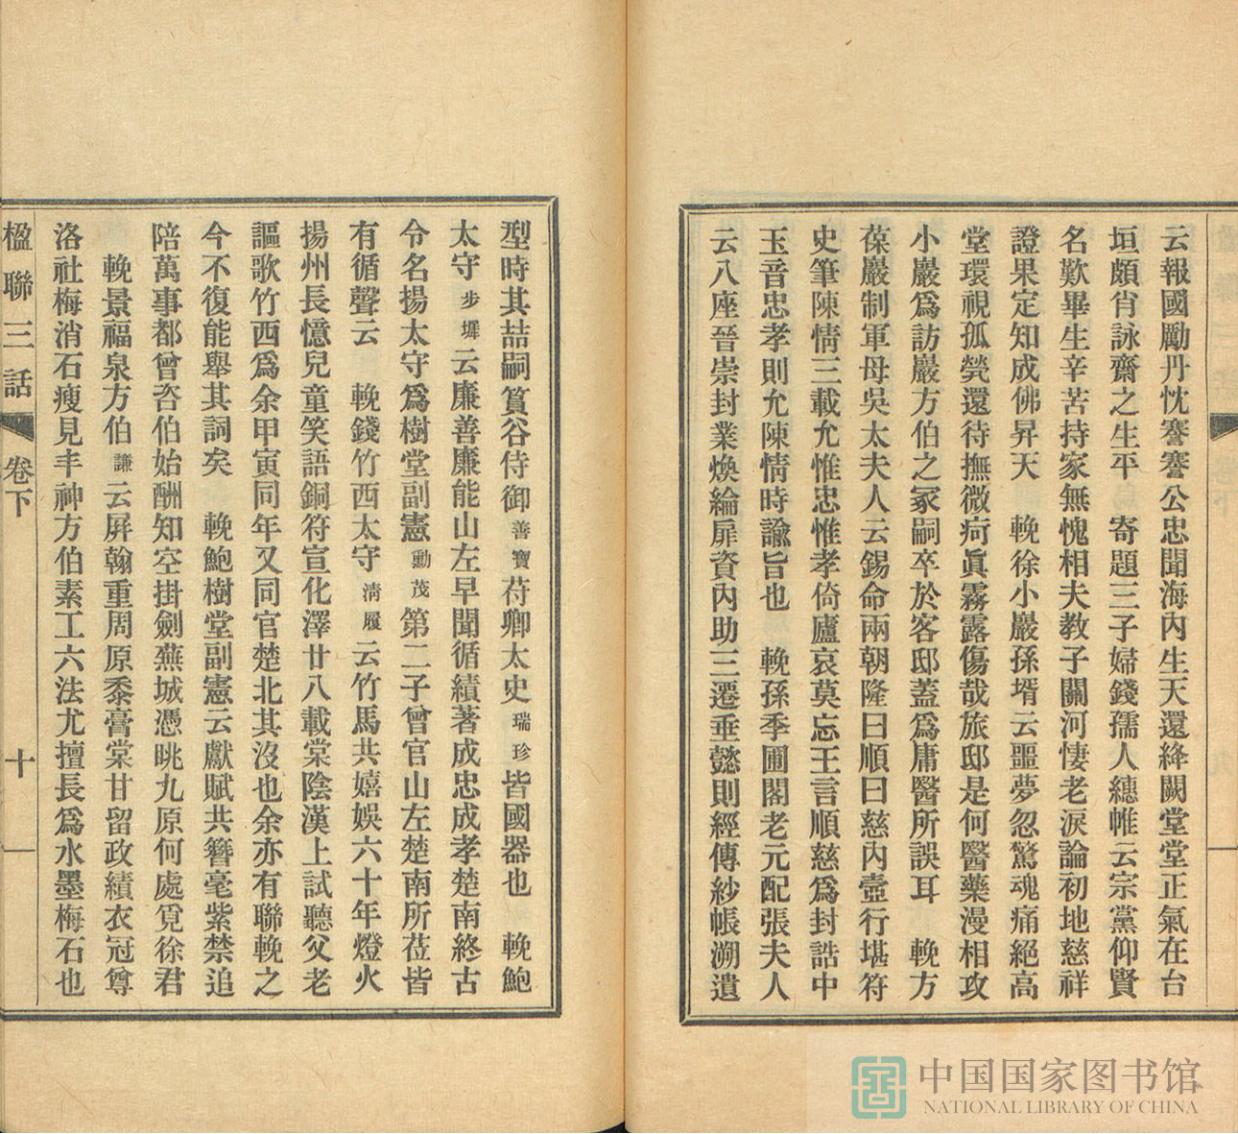 云報國勵丹忱謇謇公忠聞海內生天還絳闕堂堂正氣在台
垣頗肖詠齋之生平　寄題三子婦錢孺人繐帷云宗黨仰賢
名歎畢生辛苦持家無愧相夫教子關河悽老淚論初地慈祥
證果定知成佛昇天　輓徐小巖孫壻云噩夢忽驚魂痛絕高
堂環視孤煢還待撫微疴眞霧露傷哉旅邸是何醫藥漫相攻
小巖爲訪巖方伯之冢嗣卒於客邸蓋爲庸醫所誤耳　輓方
葆巖制軍母吳太夫人云錫命兩朝隆曰順曰慈內壼行堪符
史筆陳情三載允惟忠惟孝倚廬哀莫忘王言順慈爲封誥中
玉音忠孝則允陳情時諭旨也　輓孫季圃閣老元配張夫人
云八座晉崇封業煥綸扉資內助三遷垂懿則經傳紗帳溯遺
型時其喆嗣篔谷侍御善寶苻卿太史瑞珍皆國器也　輓鮑
太守步墀云廉善廉能山左早聞循績著成忠成孝楚南終古
令名揚太守爲樹堂副憲勳茂第二子曾官山左楚南所莅皆
有循聲云　輓錢竹西太守淸履云竹馬共嬉娛六十年燈火
揚州長憶兒童笑語銅符宣化澤廿八載棠陰漢上試聽父老
謳歌竹西爲余甲寅同年又同官楚北其沒也余亦有聯輓之
今不復能舉其詞矣　輓鮑樹堂副憲云獻賦共簪毫紫禁追
陪萬事都曾咨伯始酬知空掛劍蕪城憑眺九原何處覓徐君
輓景福泉方伯謙云屏翰重周原黍膏棠甘留政績衣冠尊
洛社梅消石瘦見丰神方伯素工六法尤擅長爲水墨梅石也
楹聯三話
卷下
十一
中国国家图书馆
NATIONAL LIBRARY OF CHINA